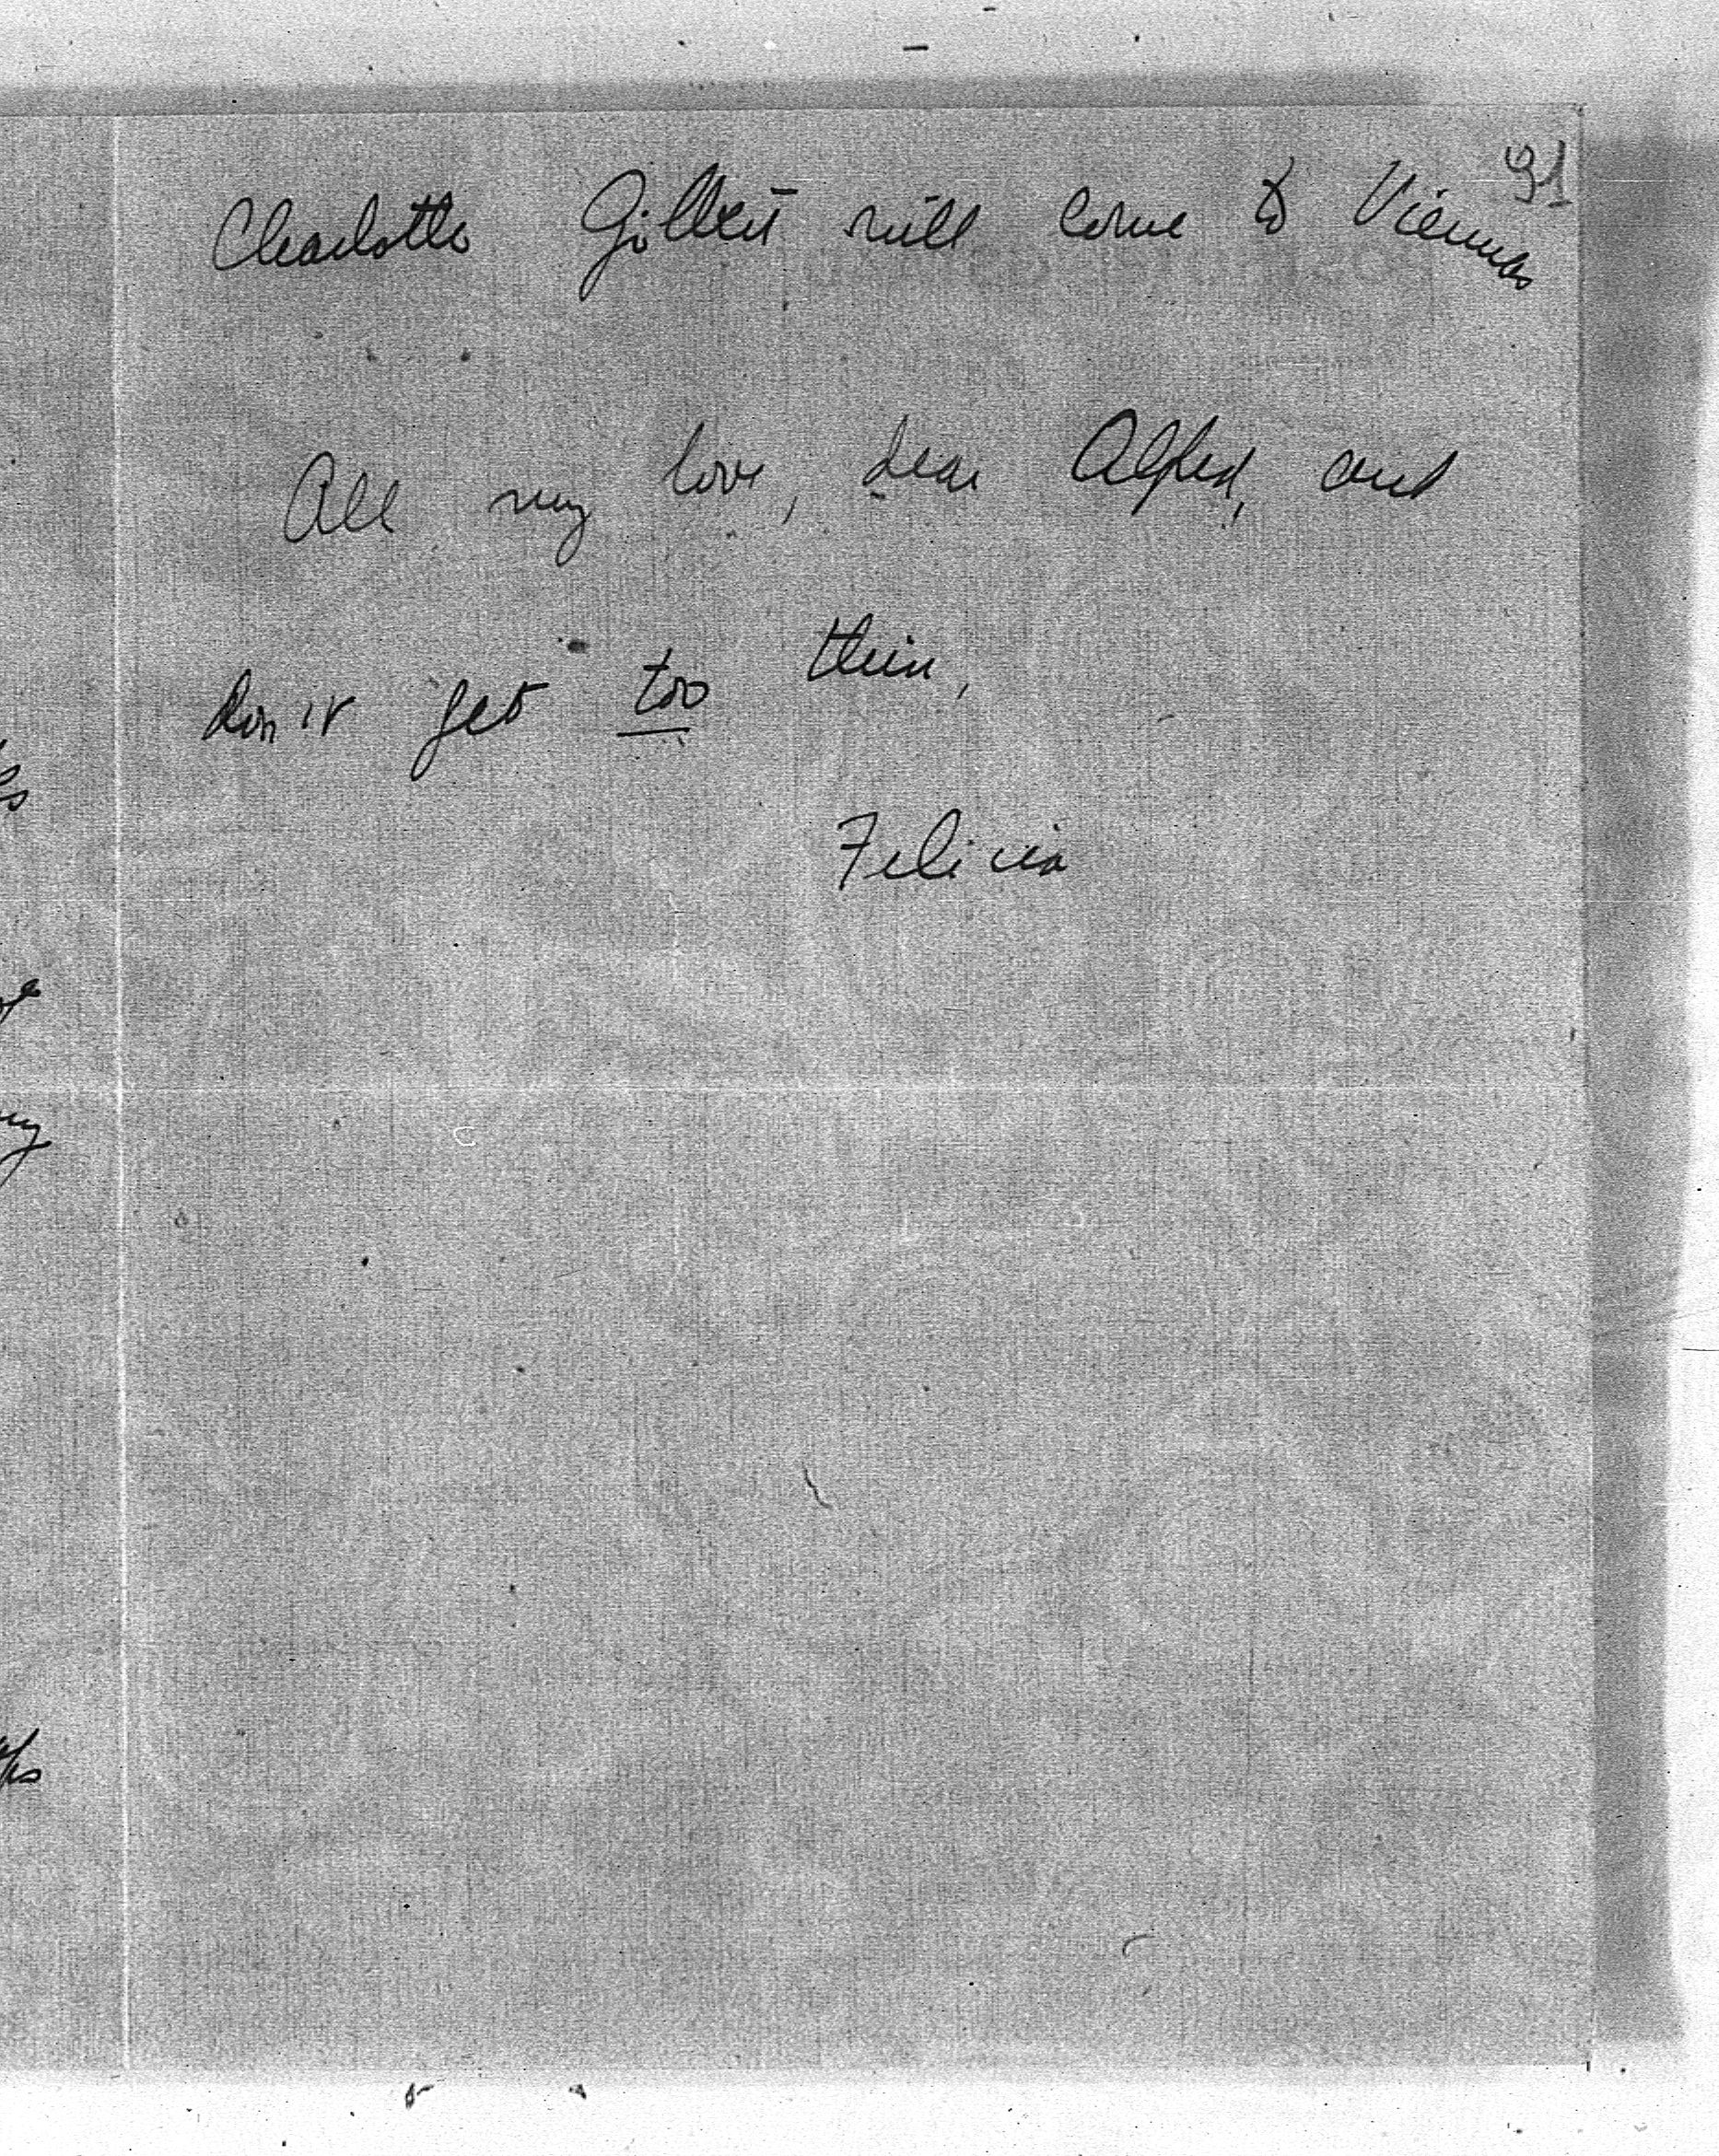 91
Charlotte Gilbert will come to Vienna
All my love, dear Alfred, and
don't get too thin,
Felicia